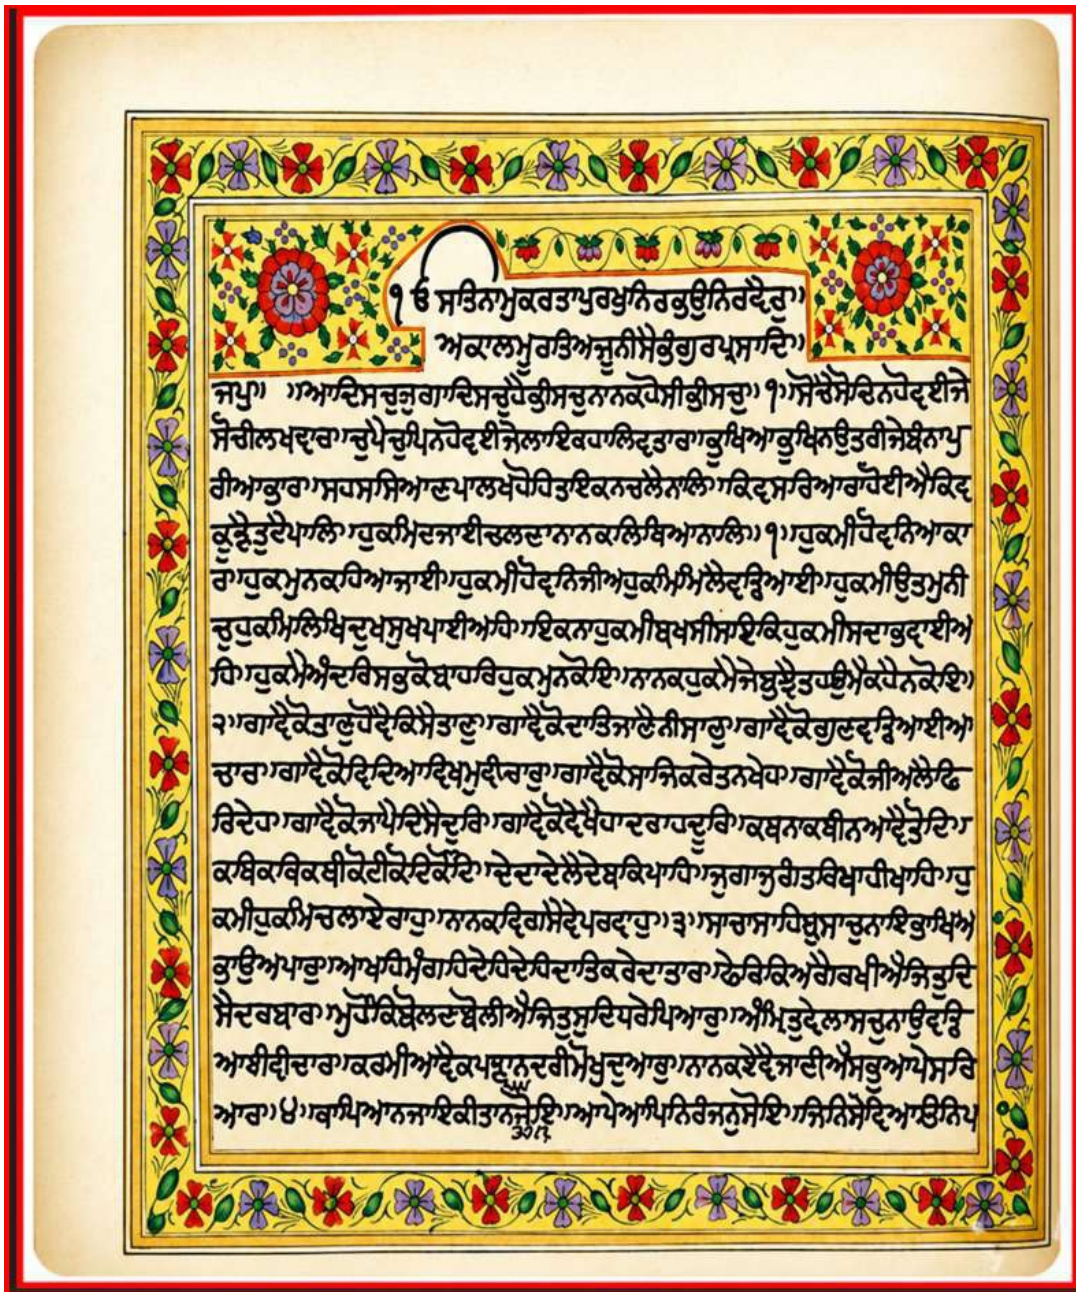 ੴ ਸਤਿਨਾਮੁਕਰਤਾਪੁਰਖੁਨਿਰਭਉਨਿਰਵੈਰੁ॥
ਅਕਾਲਮੂਰਤਿਅਜੂਨੀਸੈਭੰਗੁਰਪ੍ਰਸਾਦਿ॥
ਜਪੁ॥ ॥ਆਦਿਸਚੁਜੁਗਾਦਿਸਚੁਹੈਭੀਸਚੁਨਾਨਕਹੋਸੀਭੀਸਚੁ॥੧॥ਸੋਚੈਸੋਚਿਨਹੋਵਈਜੇ
ਸੋਚੀਲਖਵਾਰ॥ਚੁਪੈਚੁਪਿਨਹੋਵਈਜੇਲਾਇਰਹਾਲਿਵਤਾਰ॥ਭੁਖਿਆਭੁਖਨਉਤਰੀਜੇਬੰਨਾਪੁ
ਰੀਆਭਾਰ॥ਸਹਸਸਿਆਣਪਾਲਖਹੋਹਿਤਇਕਨਚਲੈਨਾਲਿ॥ਕਿਵਸਚਿਆਰਾਹੋਈਐਕਿਵ
ਕੂੜੈਤੁਟੈਪਾਲਿ॥ਹੁਕਮਿਰਜਾਈਚਲਣਾਨਾਨਕਲਿਖਿਆਨਾਲਿ॥੧॥ਹੁਕਮੀਹੋਵਨਿਆਕਾ
ਰ॥ਹੁਕਮੁਨਕਹਿਆਜਾਈ॥ਹੁਕਮੀਹੋਵਨਿਜੀਅਹੁਕਮਿਮਿਲੈਵਡਿਆਈ॥ਹੁਕਮੀਉਤਮੁਨੀ
ਚੁਹੁਕਮਿਲਿਖਿਦੁਖਸੁਖਪਾਈਅਹਿ॥ਇਕਨਾਹੁਕਮੀਬਖਸੀਸਇਕਿਹੁਕਮੀਸਦਾਭਵਾਈਅ
ਹਿ॥ਹੁਕਮੈਅੰਦਰਿਸਭੁਕੋਬਾਹਰਿਹੁਕਮੁਨਕੋਇ॥ਨਾਨਕਹੁਕਮੈਜੇਬੁਝੈਤਹਉਮੈਕਹੈਨਕੋਇ॥
੨॥ਗਾਵੈਕੋਤਾਣੁਹੋਵੈਕਿਸੈਤਾਣੁ॥ਗਾਵੈਕੋਦਾਤਿਜਾਣੈਨੀਸਾਣੁ॥ਗਾਵੈਕੋਗੁਣਵਡਿਆਈਆ
ਚਾਰ॥ਗਾਵੈਕੋਵਿਦਿਆਵਿਖਮੁਵੀਚਾਰੁ॥ਗਾਵੈਕੋਸਾਜਿਕਰੇਤਨੁਖੇਹ॥ਗਾਵੈਕੋਜੀਅਲੈਫਿ
ਰਿਦੇਹ॥ਗਾਵੈਕੋਜਾਪੈਦਿਸੈਦੂਰਿ॥ਗਾਵੈਕੋਵੇਖੈਹਾਦਰਾਹਦੂਰਿ॥ਕਥਨਾਕਥੀਨਆਵੈਤੋਟਿ॥
ਕਥਿਕਥਿਕਥੀਕੋਟੀਕੋਟਿਕੋਟਿ॥ਦੇਦਾਦੇਲੈਦੇਥਕਿਪਾਹਿ॥ਜੁਗਾਜੁਗੰਤਰਿਖਾਹੀਖਾਹਿ॥ਹੁ
ਕਮੀਹੁਕਮਿਚਲਾਏਰਾਹੁ॥ਨਾਨਕਵਿਗਸੈਵੇਪਰਵਾਹੁ॥੩॥ਸਾਚਾਸਾਹਿਬੁਸਾਚੁਨਾਇਭਾਖਿਅ
ਭਾਉਅਪਾਰੁ॥ਆਖਹਿਮੰਗਹਿਦੇਹਿਦੇਹਿਦਾਤਿਕਰੇਦਾਤਾਰ॥ਫੇਰਿਕਿਅਗੈਰਖੀਐਜਿਤੁਦਿ
ਸੈਦਰਬਾਰ॥ਮੁਹੌਕਿਬੋਲਣਬੋਲੀਐਜਿਤੁਸੁਣਿਧਰੇਪਿਆਰੁ॥ਅੰਮ੍ਰਿਤੁਵੇਲਾਸਚੁਨਾਉਵਡਿ
ਆਈਵੀਚਾਰ॥ਕਰਮੀਆਵੈਕਪੜਾਨਦਰੀਮੋਖੁਦੁਆਰੁ॥ਨਾਨਕਏਵੈਜਾਣੀਐਸਭੁਆਪੇਸਚਿ
ਆਰ॥੪॥ਥਾਪਿਆਨਜਾਇਕੀਤਾਨਹੋਇ॥ਆਪੇਆਪਿਨਿਰੰਜਨੁਸੋਇ॥ਜਿਨਿਸੇਵਿਆਤਿਨਿਪ